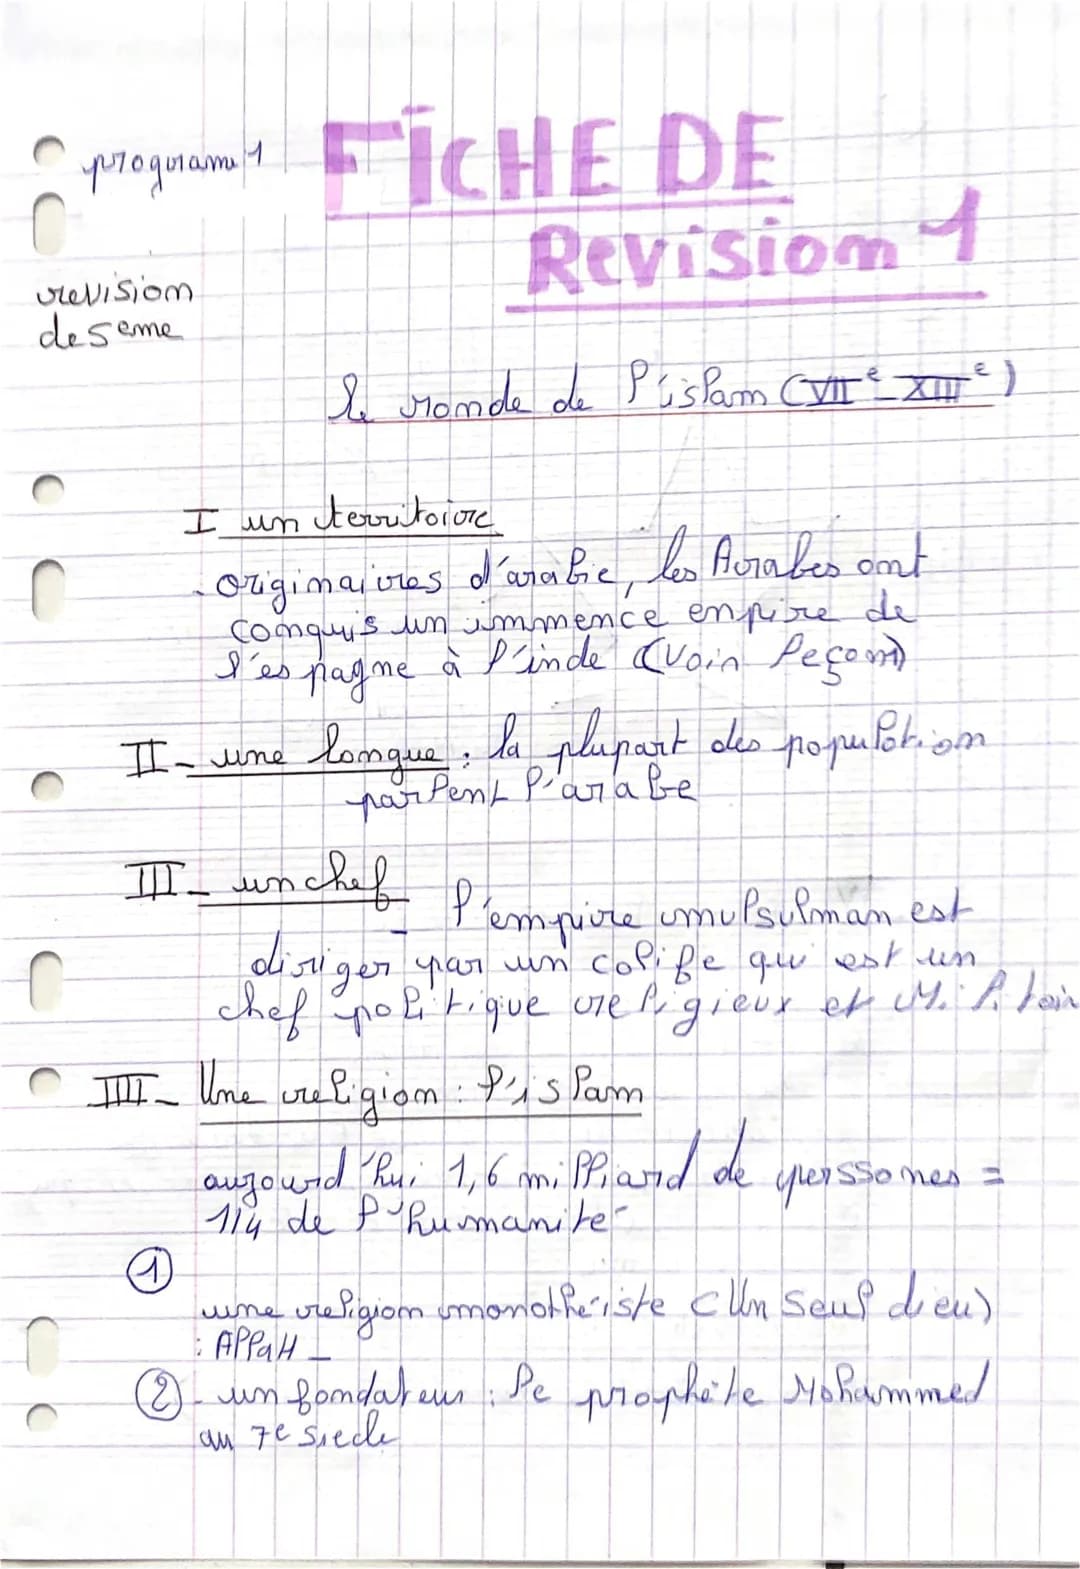 program 1
FICHE DE
Revision 1
revision
de 5eme
le monde de l'islam (VIIe - XIIIe)
I un territoire
- originaires d'arabie, les Arabes ont
conquis un immence enpire de
l'espagne à l'inde (voir leçon)
II - une langue : la plupart des population
parlent l'arabe
III - un chef - l'empire mulsulman est
diriger par un calife qui est un
chef politique religieux et
IIII - Une religion : l'islam
aujourd'hui 1,6 milliard de perssones =
1/4 de l'humanite
①
une religion monothéiste (Un seul dieu)
: AllaH -
② - un fondateur : le prophète Mohammed
au 7e siecle